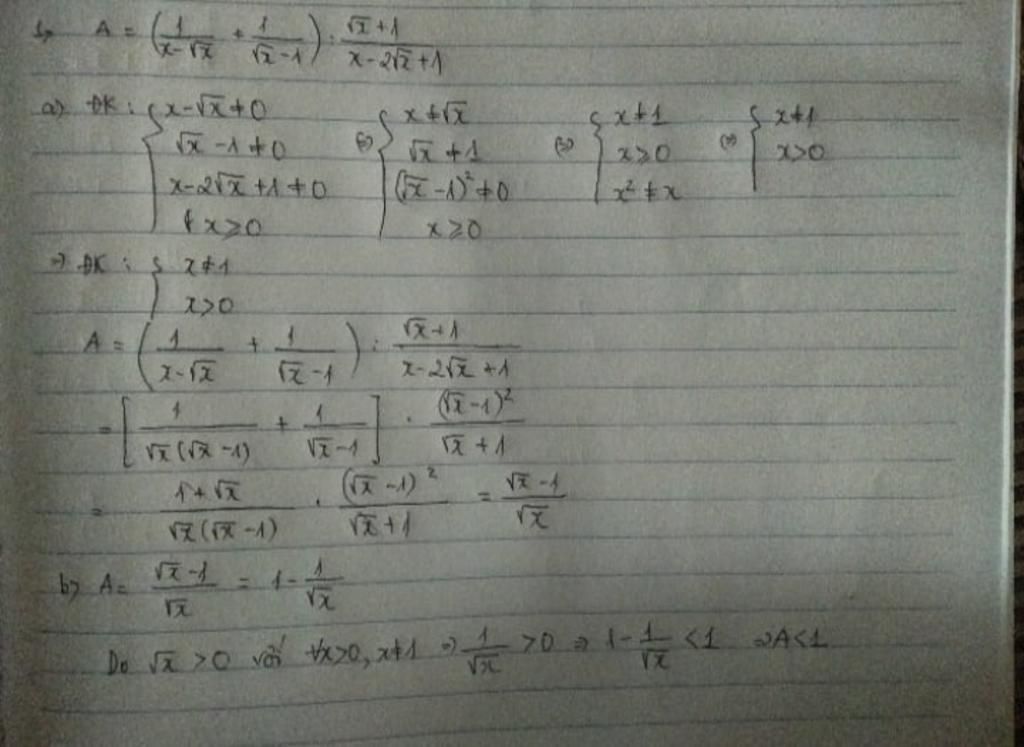 1, A = (1/(x-√x) + 1/(√x-1)) : (√x+1)/(x-2√x+1)
a) ĐK : { x-√x≠0 (=) { x≠√x (=) { x≠1 (=) { x≠1
√x-1≠0 √x≠1 x≥0 x>0
x-2√x+1≠0 (√x-1)²≠0 x²≠x
x≥0 x≥0
=> ĐK : { x≠1
x>0
A = (1/(x-√x) + 1/(√x-1)) : (√x+1)/(x-2√x+1)
= [1/(√x(√x-1)) + 1/(√x-1)] . (√x-1)²/(√x+1)
= (1+√x)/(√x(√x-1)) . (√x-1)²/(√x+1) = (√x-1)/√x
b) A = (√x-1)/√x = 1 - 1/√x
Do √x >0 với ∀x>0, x≠1 => 1/√x >0 => 1-1/√x <1 => A<1